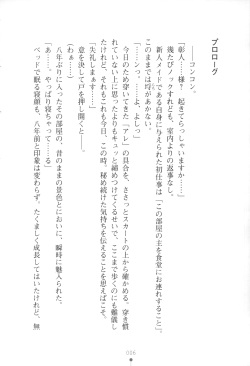 プロローグ
――コンコン。
「彰人……様？　起きてらっしゃいますか……」
幾たびノックすれども、室内よりの返事なし。
新人メイドである自身に与えられた初仕事は「この部屋の主を食堂にお連れすること」。
このままでは埒があかない。
「……んっ。……よ、よしっ」
今日のため穿いてきた「アレ」の具合を、ささっとスカートの上から確かめる。穿き慣
れていないせいか思ったよりもキュッと締めつけてくるせいで、ここまで歩くのにも難儀し
たけれど、それもこれも今日、この時。秘め続けた気持ちを伝えることを思えばこそ。
「失礼しまぁす……」
意を決して戸を押し開くと――。
「わぁ……」
八年ぶりに入ったその部屋の、昔のままの景色とにおいに、瞬時に魅入られた。
「あ……、やっぱり寝ちゃってる……」
ベッドで眠る寝顔も、八年前と印象は変わらず。たくましく成長してはいたけれど、無
006